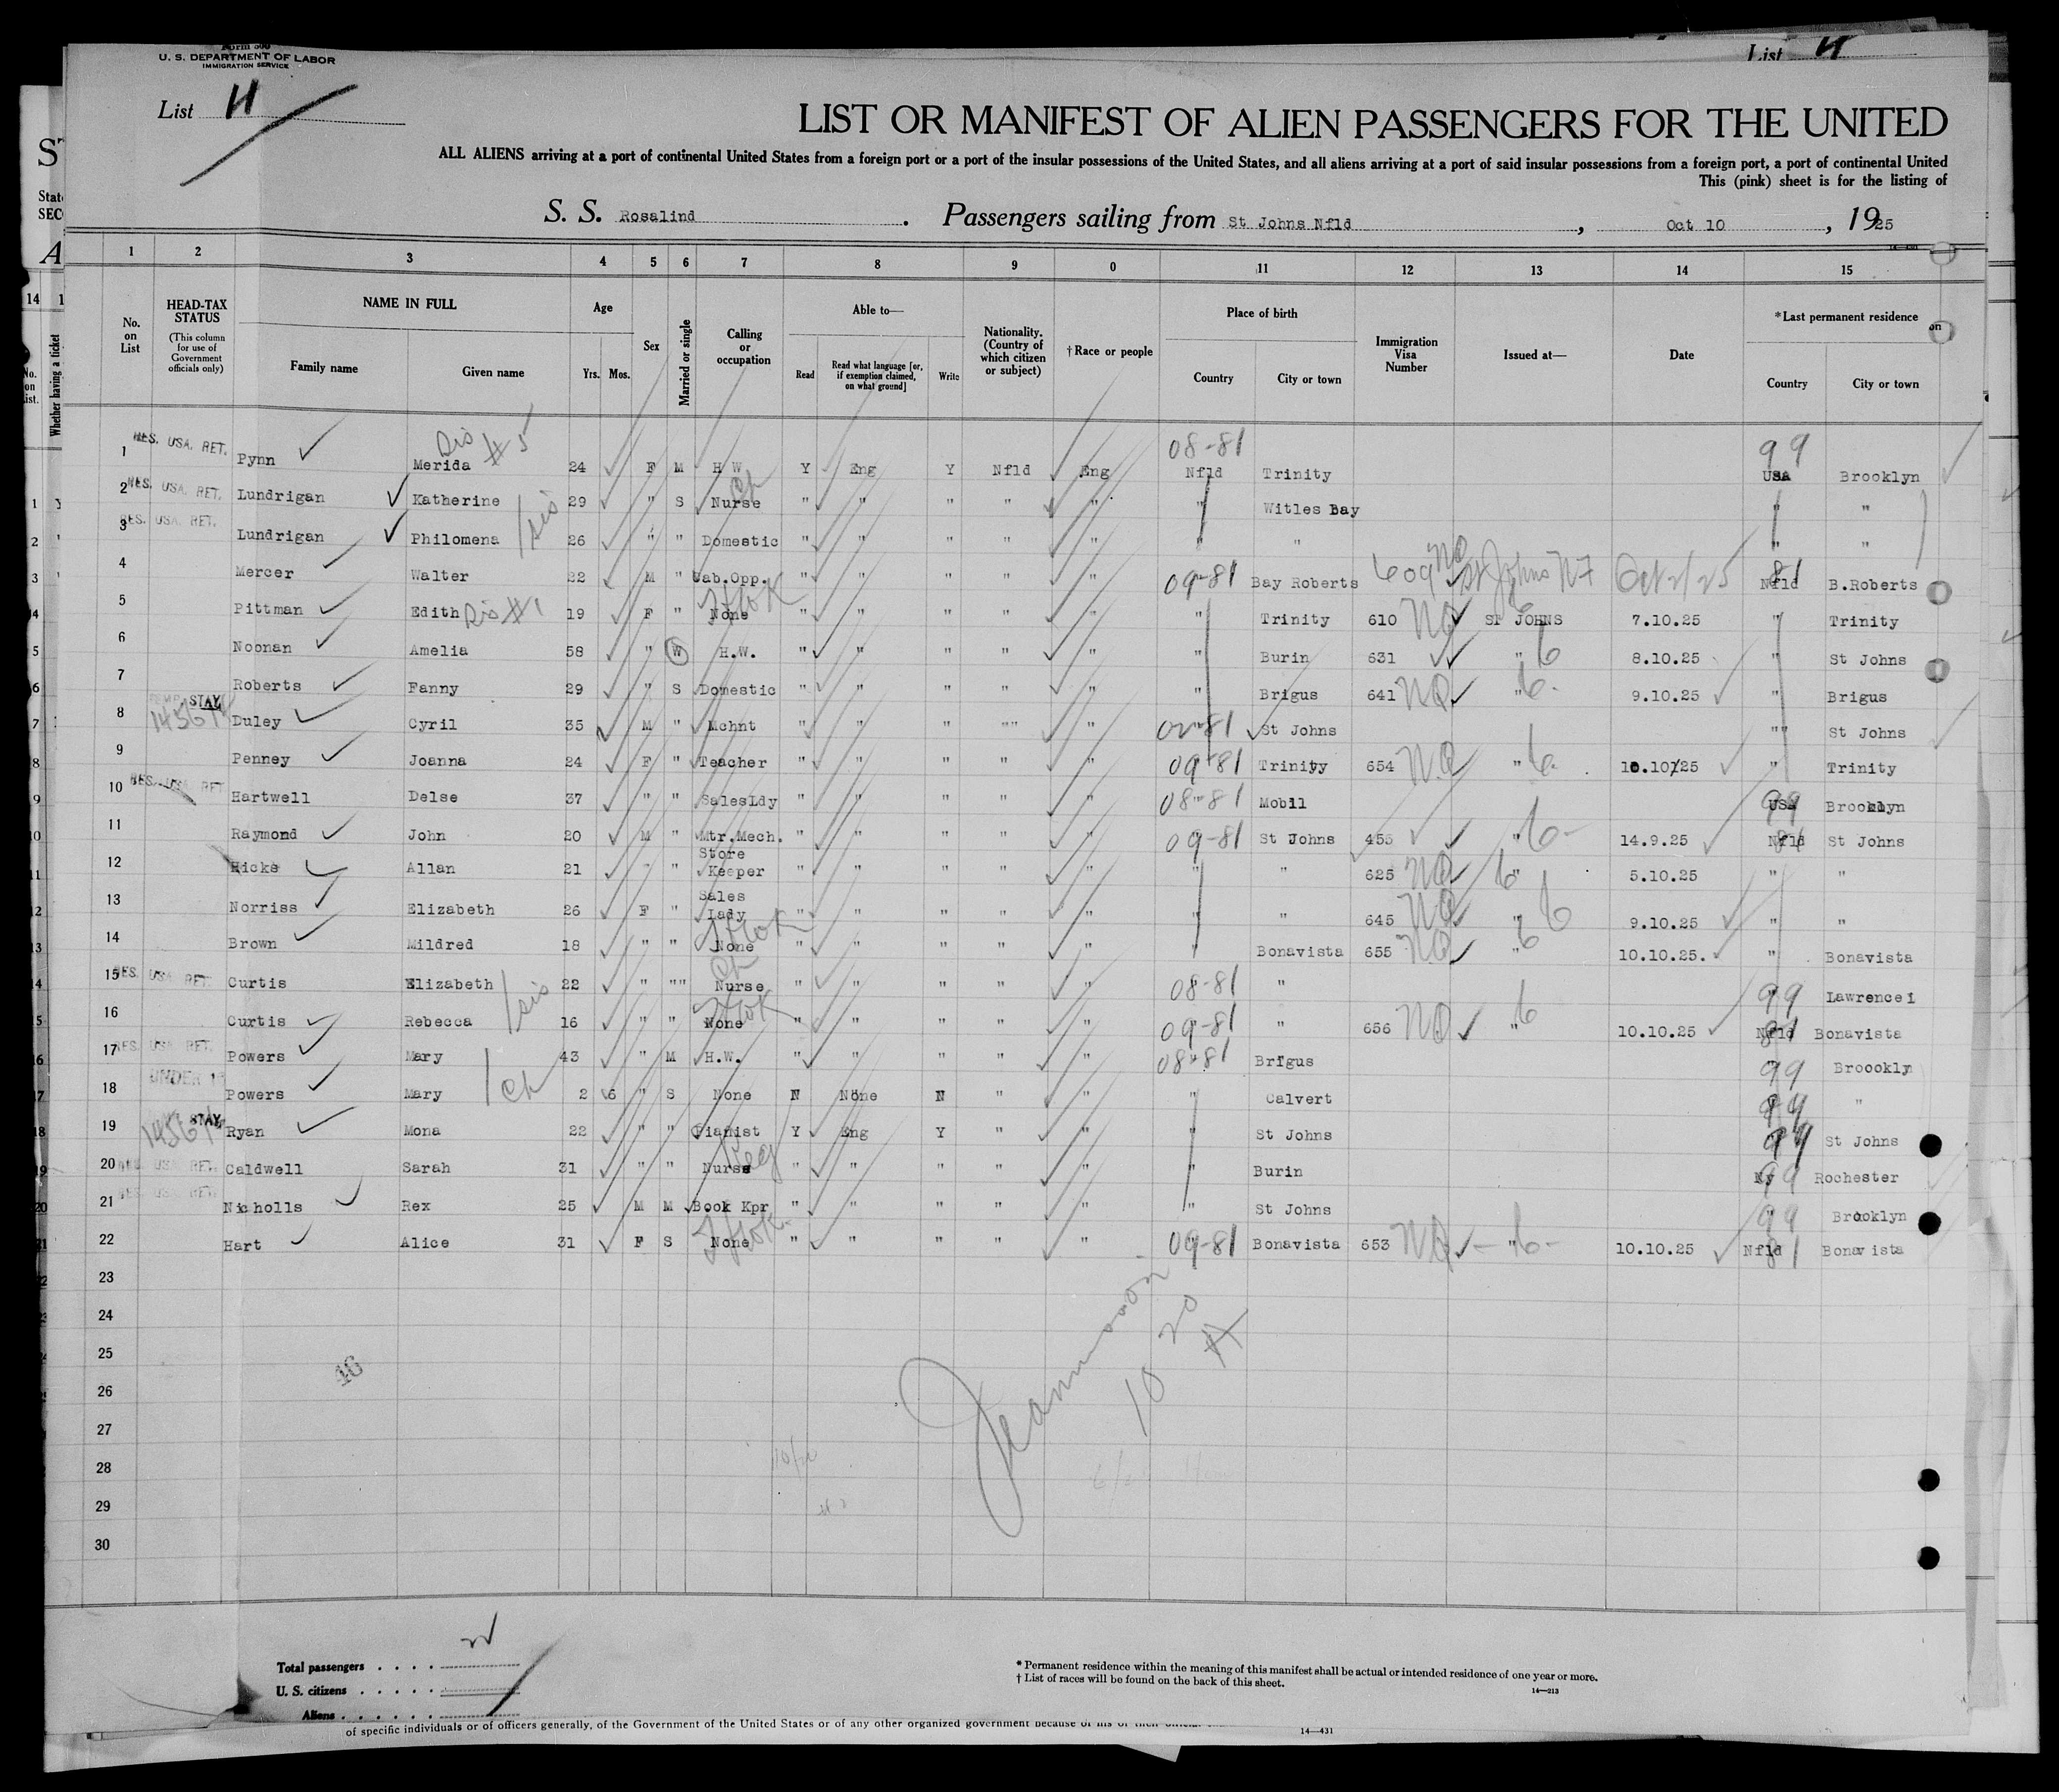 Form 500
U. S. DEPARTMENT OF LABOR
IMMIGRATION SERVICE
List
List
LIST OR MANIFEST OF ALIEN PASSENGERS FOR THE UNITED
ALL ALIENS arriving at a port of continental United States from a foreign port or a port of the insular possessions of the United States, and all aliens arriving at a port of said insular possessions from a foreign port, a port of continental United
This (pink) sheet is for the listing of
S. S. Rosalind . Passengers sailing from St Johns Nfld , Oct 10 , 1925
1 2 3 4 5 6 7 8 9 0 11 12 13 14 15
No. on List
HEAD-TAX STATUS (This column for use of Government officials only)
NAME IN FULL
Family name Given name
Age
Yrs. Mos.
Sex
Married or single
Calling or occupation
Able to—
Read Read what language [or, if exemption claimed, on what ground] Write
Nationality. (Country of which citizen or subject)
† Race or people
Place of birth
Country City or town
Immigration Visa Number
Issued at—
Date
*Last permanent residence
Country City or town
Whether having a ticket
1 RES. USA. RET. Pynn Merida Dis #5 24 F M H W Y Eng Y Nfld Eng 08-81 Nfld Trinity 99 USA Brooklyn
2 RES. USA. RET. Lundrigan Katherine 29 " S Nurse " " " " " " Witles Bay " "
3 RES. USA. RET. Lundrigan Philomena sis 26 " " Domestic " " " " " " " " "
4 Mercer Walter 22 M " Lab.Opp. " " " " " 09-81 Bay Roberts 609 NQ St Johns NF Oct 2/25 Nfld B.Roberts
5 Pittman Edith Dis #1 19 F " None " " " " " " Trinity 610 NQ ST JOHNS 7.10.25 " Trinity
6 Noonan Amelia 58 " W H.W. " " " " " " Burin 631 " 6 8.10.25 " St Johns
7 Roberts Fanny 29 " S Domestic " " " " " " Brigus 641 NQ " 6 9.10.25 " Brigus
8 STAY Duley Cyril 35 M " Mchnt " " " "" " St Johns "" St Johns
9 Penney Joanna 24 F " Teacher " " " " " 09-81 Trinity 654 NQ " 6 10.10.25 " Trinity
10 RES. USA RET Hartwell Delse 37 " " SalesLdy " " " " " 08-81 Mobil 99 USA Brooklyn
11 Raymond John 20 M " Mtr.Mech. " " " " " 09-81 St Johns 455 " 6 14.9.25 Nfld St Johns
12 Hicks Allan 21 " " Store Keeper " " " " " " " 625 NQ 6 " 5.10.25 " "
13 Norriss Elizabeth 26 F " Sales Lady " " " " " " " 645 NQ " 6 9.10.25 " "
14 Brown Mildred 18 " " None " " " " " " Bonavista 655 NQ " 6 10.10.25. " Bonavista
15 RES. USA RET. Curtis Elizabeth 22 " "" Nurse " " " " " 08-81 " 99 Lawrence
16 Curtis Rebecca sis 16 " " None " " " " " 09-81 " 656 NQ " 6 10.10.25 Nfld Bonavista
17 RES. USA RET. Powers Mary 43 " M H.W. " " " " " 08-81 Brigus 99 Broookly
18 UNDER 16 Powers Mary Ch 2 6 " S None N None N " " " Calvert "
19 STAY Ryan Mona 22 " " Pianist Y Eng Y " " " St Johns St Johns
20 USA RET. Caldwell Sarah 31 " " Nurse Reg " " " " " " Burin Ny 99 Rochester
21 RES. USA RET. Nicholls Rex 25 M M Book Kpr " " " " " " St Johns 99 Brooklyn
22 Hart Alice 31 F S None " " " " " 09-81 Bonavista 653 NQ " 6 10.10.25 Nfld Bonavista
23
24
25
26
27
28
29
30
46
10 20
Total passengers . . . .
U. S. citizens . . . . .
Aliens . . . . . .
* Permanent residence within the meaning of this manifest shall be actual or intended residence of one year or more.
† List of races will be found on the back of this sheet.
14—213
of specific individuals or of officers generally, of the Government of the United States or of any other organized government because of his or their
14—431